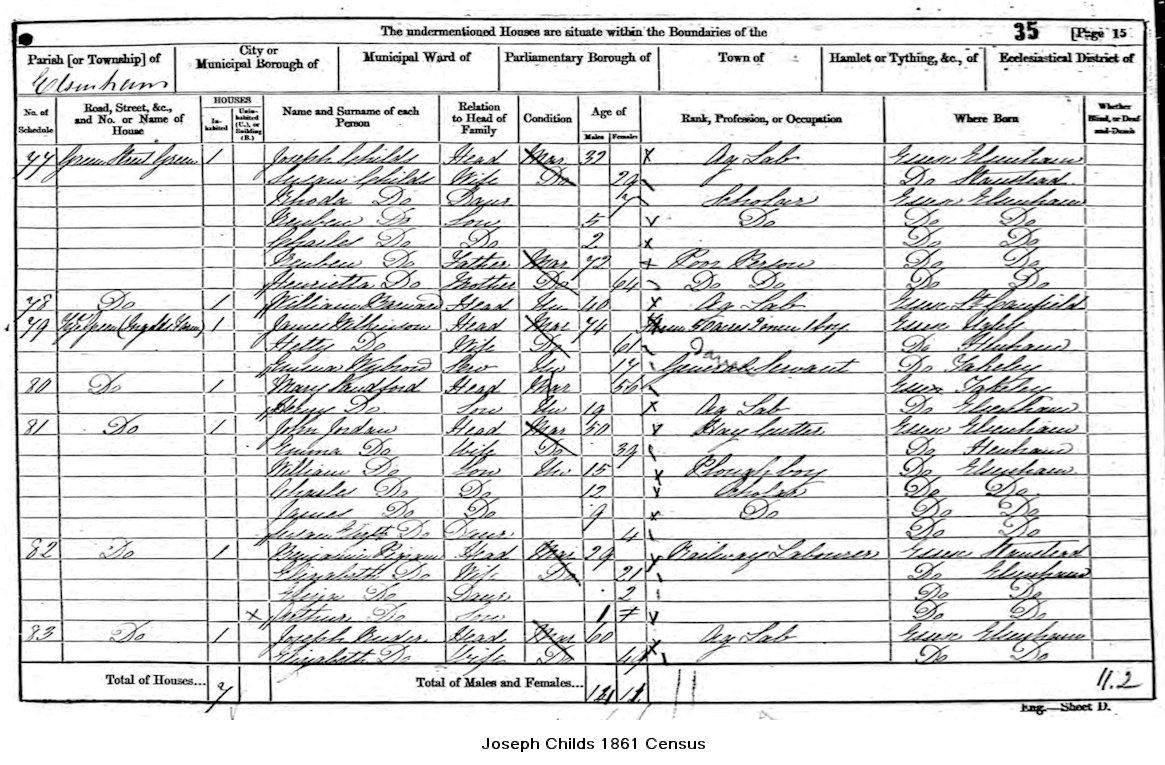 The undermentioned Houses are situate within the Boundaries of the 35 [Page 15
Parish [or Township] of City or Municipal Borough of Municipal Ward of Parliamentary Borough of Town of Hamlet or Tything, &c., of Ecclesiastical District of
Elsenham
No. of Schedule Road, Street, &c., and No. or Name of House HOUSES In-habited Unin-habited (U.), or Building (B.) Name and Surname of each Person Relation to Head of Family Condition Age of Males Females Rank, Profession, or Occupation Where Born Whether Blind, or Deaf-and-Dumb
77 Green Street Green 1 Joseph Childs Head Mar 32 X Ag Lab Essex Elsenham
Susan Childs Wife Do 29 Do Stanstead
Rhoda Do Daur 7 Scholar Essex Elsenham
Reuben Do Son 5 Do Do Do
Charles Do Do 2 X Do Do
Reuben Do Father Mar 72 Poor Person Do Do
Henrietta Do Mother Do 64 Do Do Do Do
78 Do 1 William Head Un 40 X Ag Lab Essex
79 1 James Wilkinson Head Mar 74 Essex Ugley
Hetty Do Wife Do 61 Do Henham
Emma Wybrow Serv Un 17 General Servant Do Takeley
80 Do 1 Mary Sandford Head Mar 56 Essex Takeley
Henry Do Son Un 19 X Ag Lab Do Elsenham
81 Do 1 John Jordan Head Mar 50 Hay Cutter Essex Elsenham
Emma Do Wife Do 39 Do Henham
William Do Son Un 15 X Ploughboy Do Elsenham
Charles Do Do 12 Scholar Do Do
James Do Do 9 X Do Do Do
Do Daur 4 Do Do
82 Do 1 Benjamin Head Mar 29 Railway Labourer Essex Stanstead
Elizabeth Do Wife Do 21 Do Elsenham
Eliza Do Daur 2 Do Do
X Arthur Do Son 1 Do Do
83 Do 1 Joseph Head Mar 60 Ag Lab Essex Elsenham
Elizabeth Do Wife Do Do Do
Total of Houses... 7 Total of Males and Females... 11.2
Eng.—Sheet D.
Joseph Childs 1861 Census